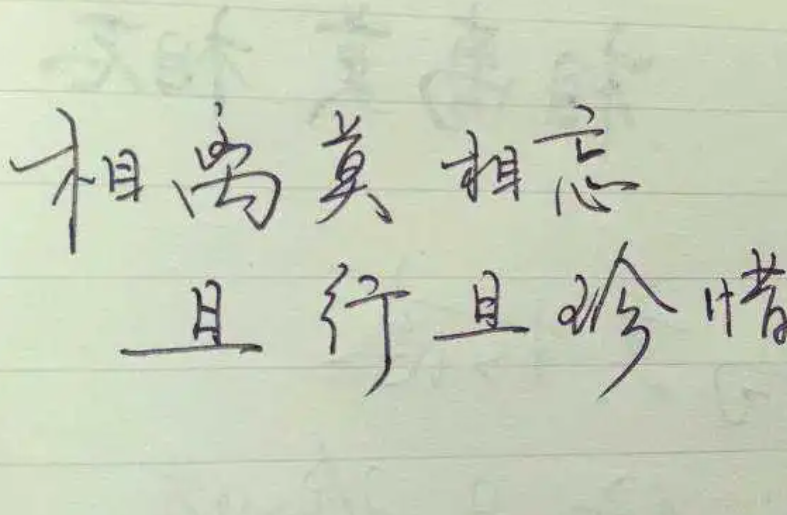 相离莫相忘
且行且珍惜